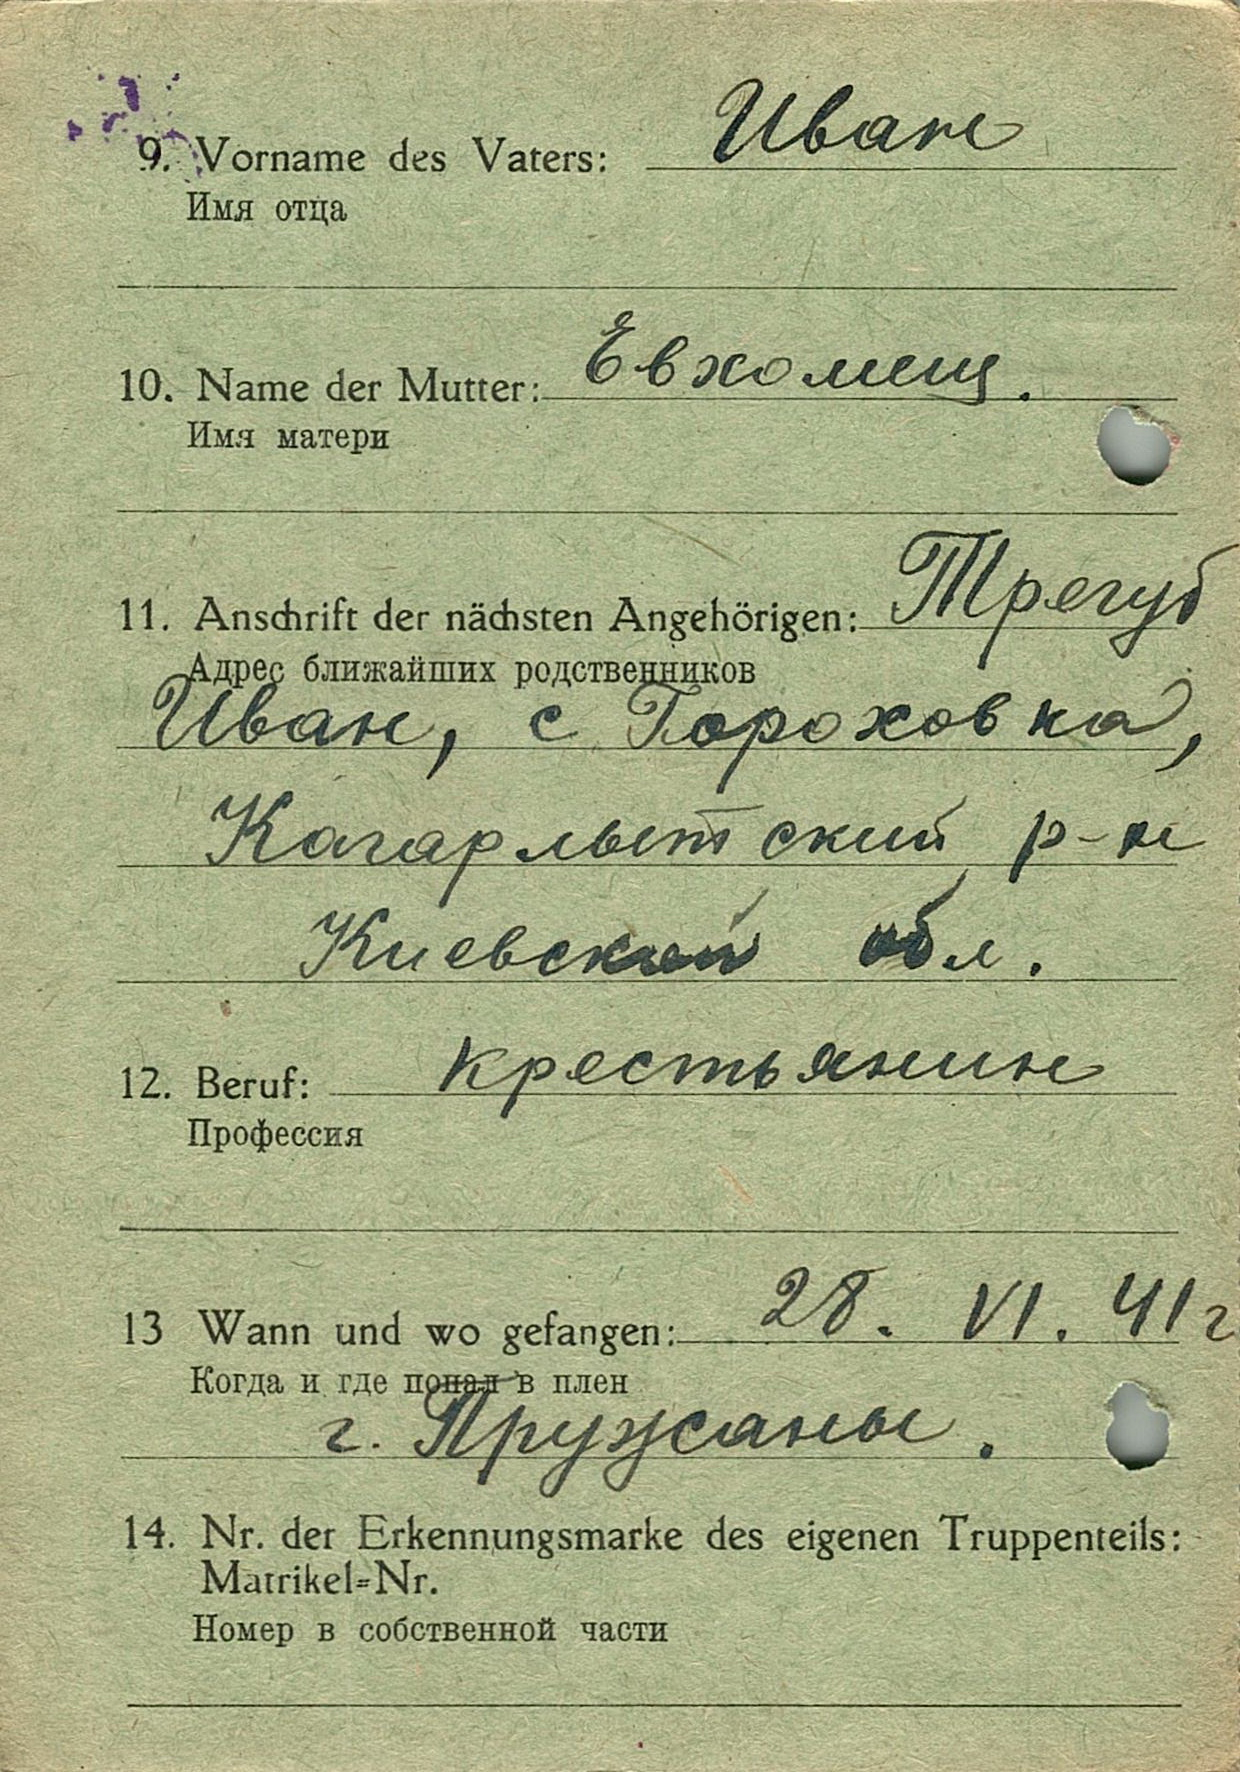 9. Vorname des Vaters: Иван
Имя отца
10. Name der Mutter: Евхомещ.
Имя матери
11. Anschrift der nächsten Angehörigen: Трегуб
Адрес ближайших родственников
Иван, с Гороховка,
Кагарлытский р-н
Киевской обл.
12. Beruf: крестьянин
Профессия
13 Wann und wo gefangen: 28. VI. 41 г
Когда и где попал в плен
г. Пружаны.
14. Nr. der Erkennungsmarke des eigenen Truppenteils:
Matrikel=Nr.
Номер в собственной части